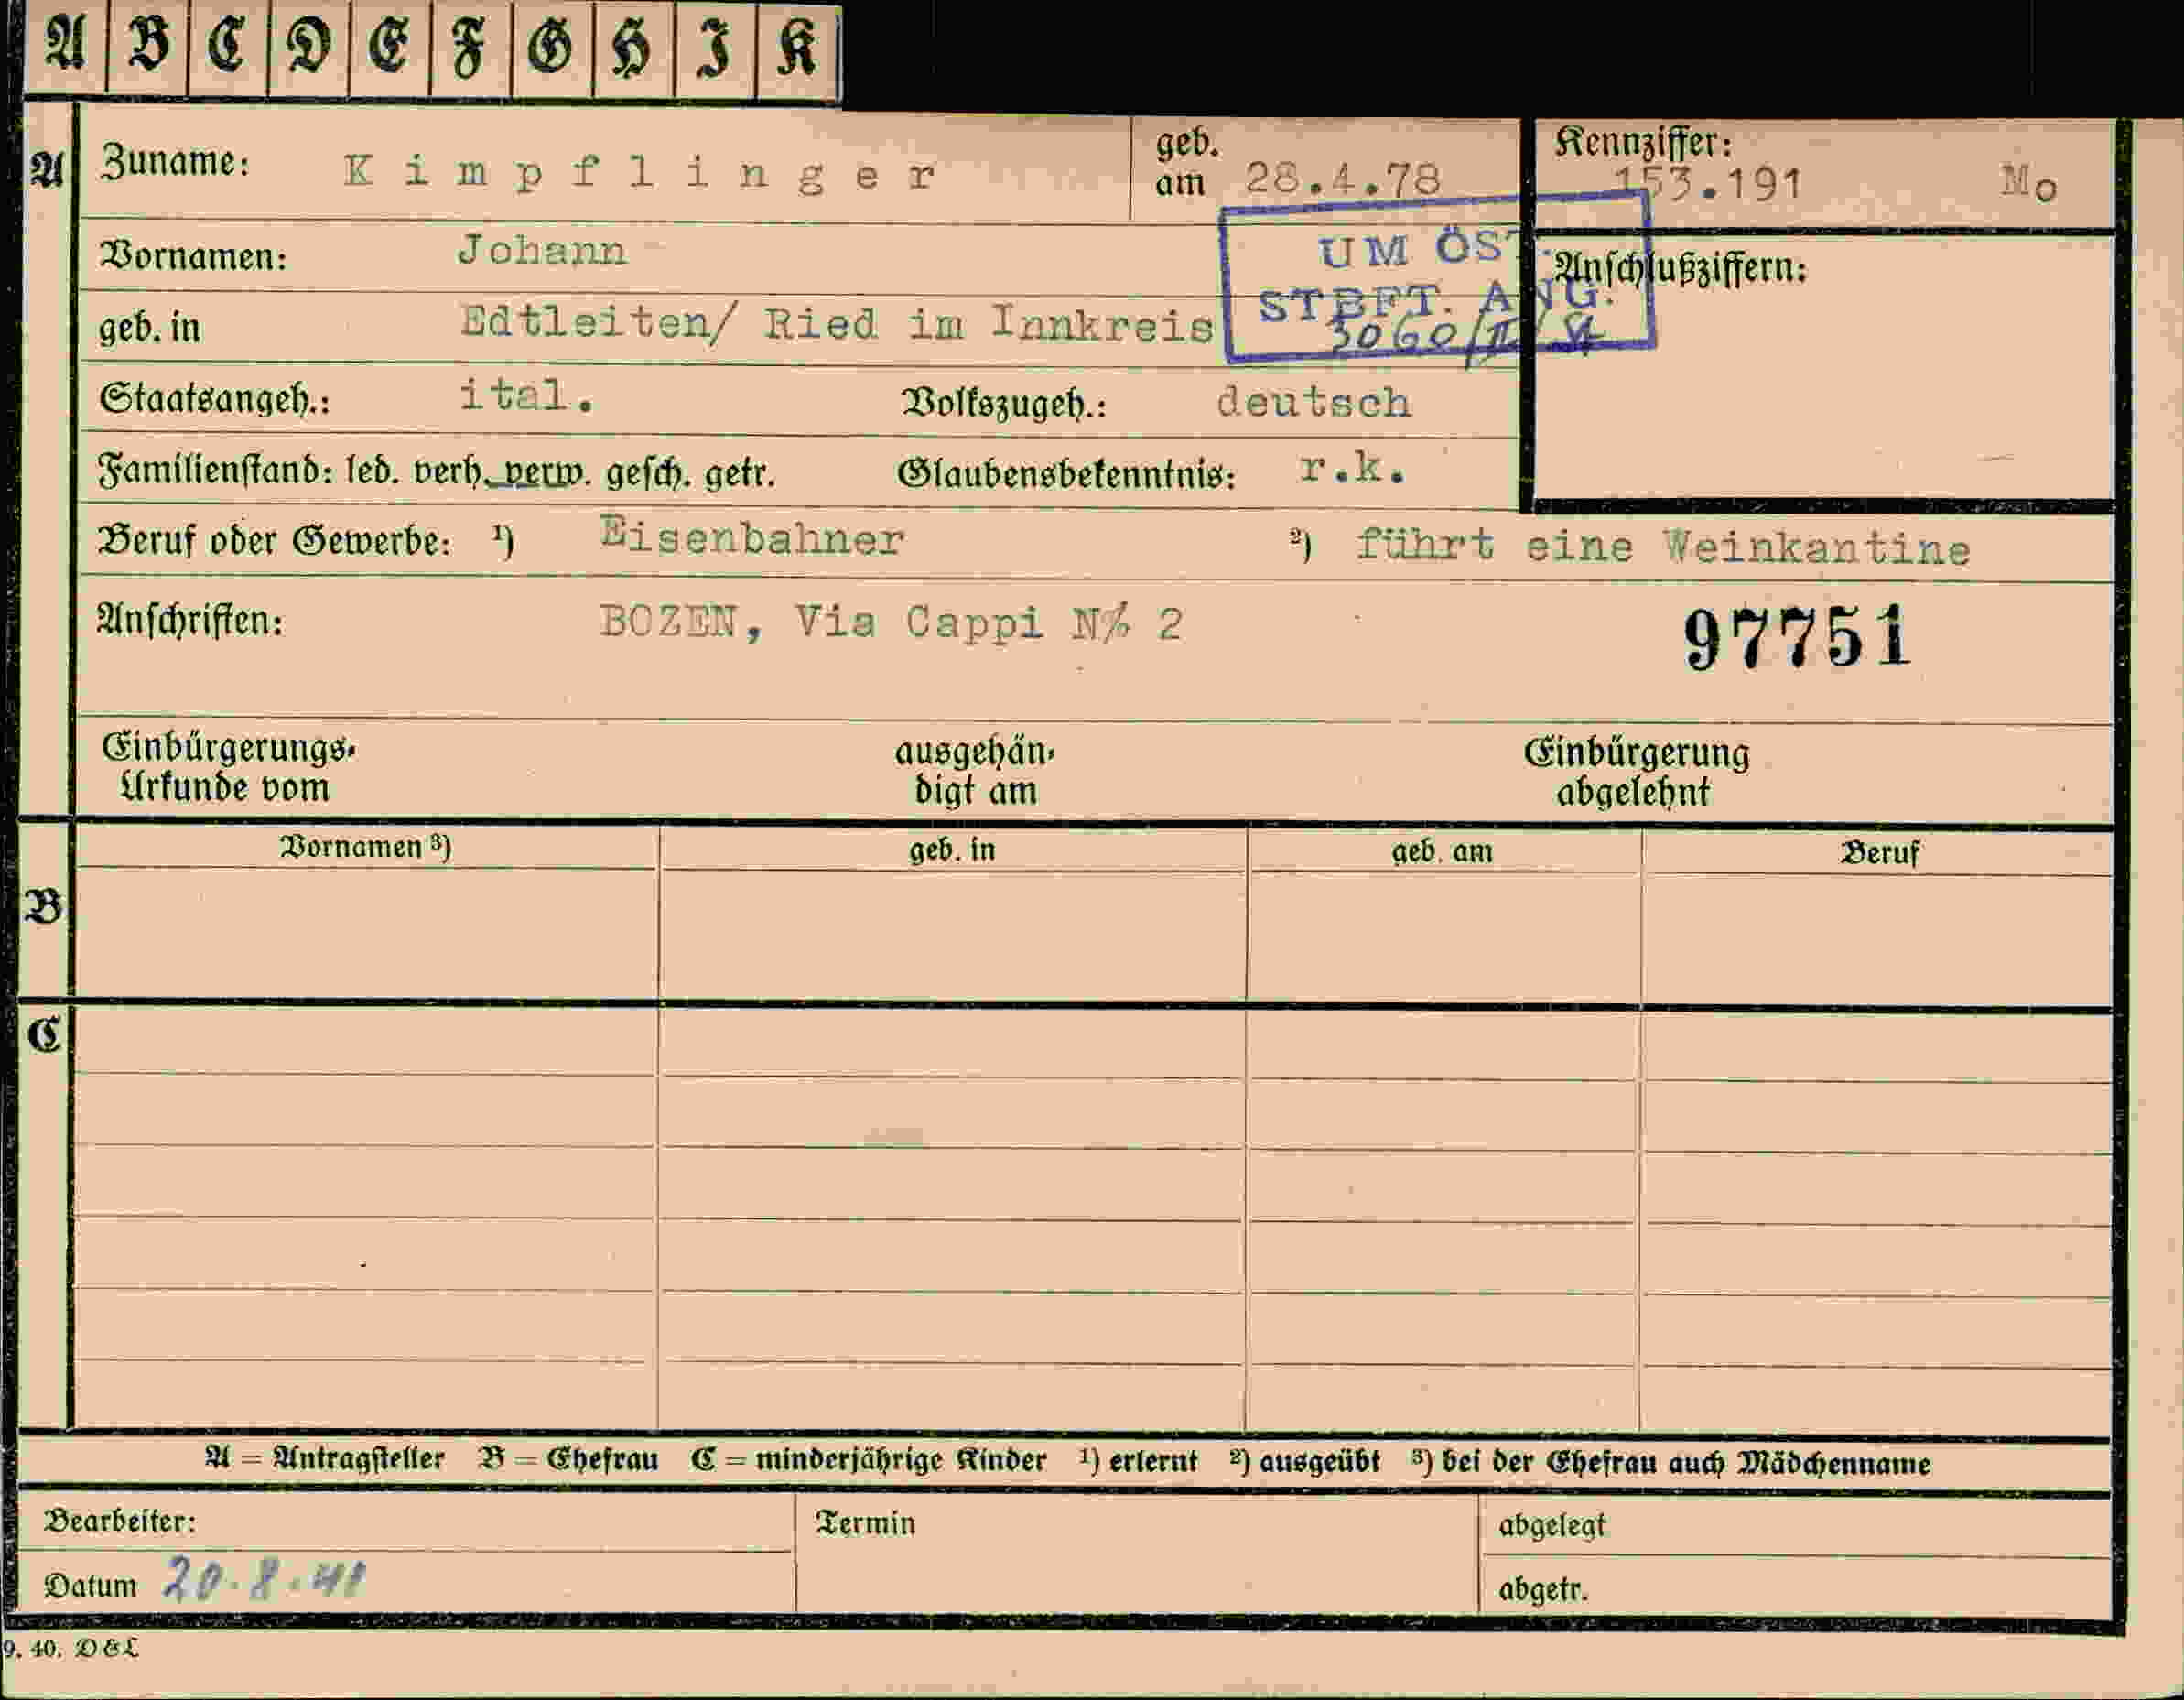 A B C D E F G H I K
A Zuname: Kimpflinger geb. am 28.4.78 Kennziffer: 153.191 Mo
Vornamen: Johann UM ÖST. Anschlußziffern:
geb. in Edtleiten/ Ried im Innkreis STBFT. ANG.
3060/II/
Staatsangeh.: ital. Volkszugeh.: deutsch
Familienstand: led. verh. verw. gesch. getr. Glaubensbekenntnis: r.k.
Beruf oder Gewerbe: ¹) Eisenbahner ²) führt eine Weinkantine
Anschriften: BOZEN, Via Cappi N% 2 97751
Einbürgerungs- ausgehän- Einbürgerung
Urkunde vom digt am abgelehnt
Vornamen ³) geb. in geb. am Beruf
B
C
A = Antragsteller B = Ehefrau C = minderjährige Kinder ¹) erlernt ²) ausgeübt ³) bei der Ehefrau auch Mädchenname
Bearbeiter: Termin abgelegt
Datum 20.8.41 abgetr.
9. 40. D&L